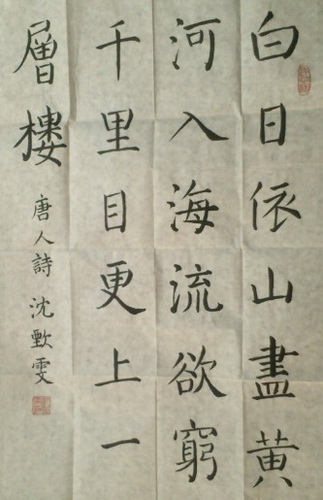 白日依山盡黃
河入海流欲窮
千里目更上一
層樓
唐人詩 沈歅雯